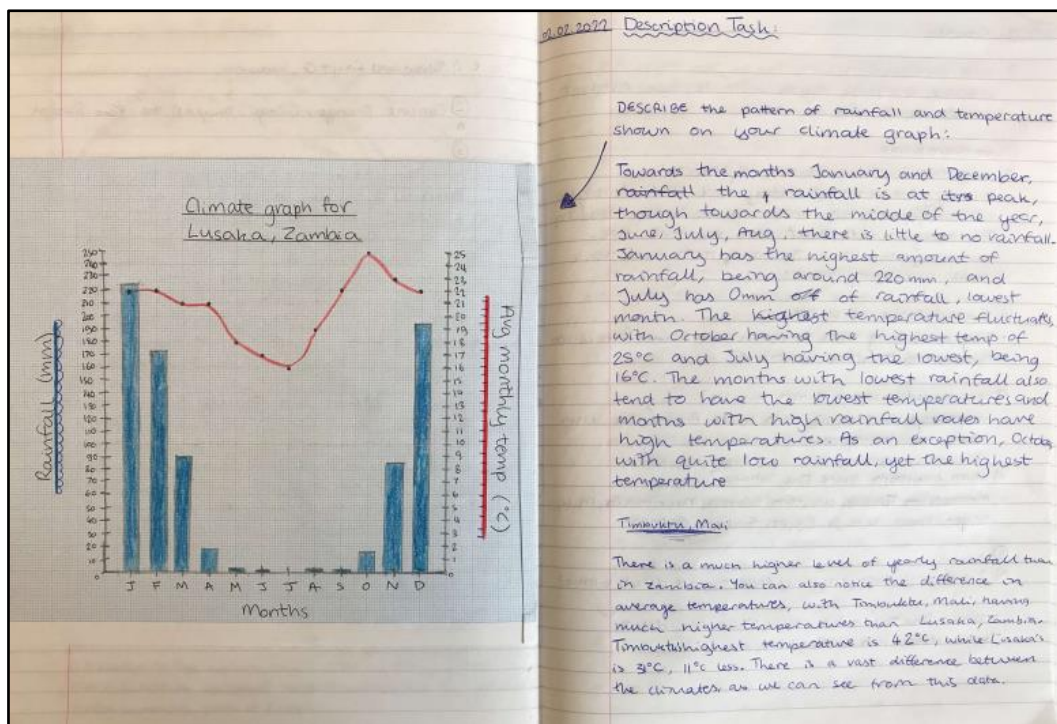 Climate graph for
Lusaka, Zambia
Rainfall (mm)
250
240
230
220
210
200
190
180
170
160
150
140
130
120
110
100
90
80
70
60
50
40
30
20
10
0
25
24
23
22
21
20
19
18
17
16
15
14
13
12
11
10
9
8
7
6
5
4
3
2
1
0
Avg monthly temp (°C)
J F M A M J J A S O N D
Months
02.02.2022 Description Task:
DESCRIBE the pattern of rainfall and temperature
shown on your climate graph:
Towards the months January and December,
rainfall the, rainfall is at its peak,
though towards the middle of the year,
June, July, Aug, there is little to no rainfall.
January has the highest amount of
rainfall, being around 220mm, and
July has 0mm off of rainfall, lowest
month. The highest temperature fluctuates,
with October having the highest temp of
25°C and July having the lowest, being
16°C. The months with lowest rainfall also
tend to have the lowest temperatures and
months with high rainfall rates have
high temperatures. As an exception, October
with quite low rainfall, yet the highest
temperature
Timbuktu, Mali
There is a much higher level of yearly rainfall than
in Zambia. You can also notice the difference in
average temperatures, with Timbuktu, Mali, having
much higher temperatures than Lusaka, Zambia.
Timbuktu's highest temperature is 42°C, while Lusaka's
is 31°C, 11°C less. There is a vast difference between
the climates, as we can see from this data.